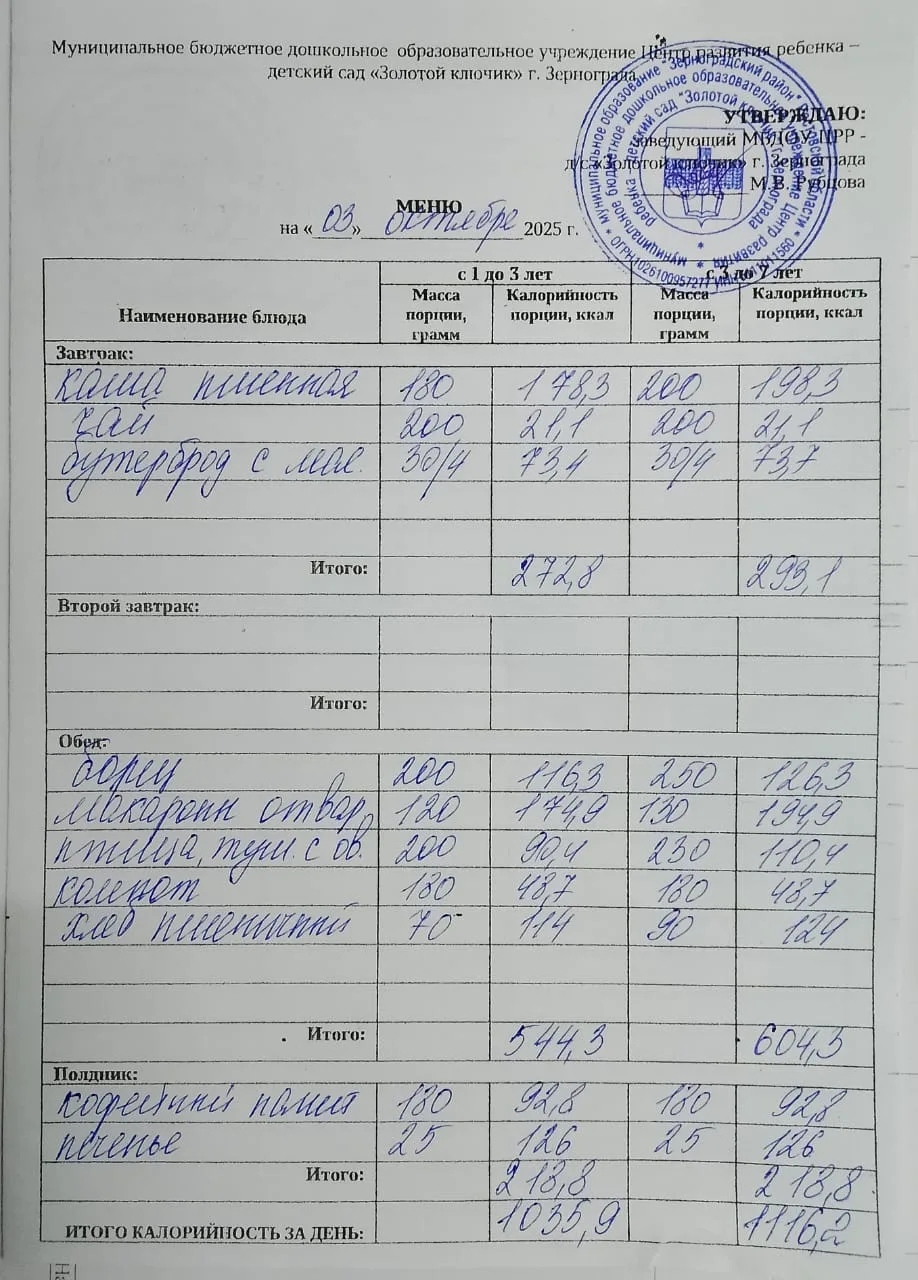 Муниципальное бюджетное дошкольное образовательное учреждение Центр развития ребенка –
детский сад «Золотой ключик» г. Зернограда
УТВЕРЖДАЮ:
заведующий МБДОУ ЦРР -
д/с «Золотой ключик» г. Зернограда
М.В. Рубцова
МЕНЮ
на «03» октябре 2025 г.
Наименование блюда с 1 до 3 лет с 3 до 7 лет
Масса порции, грамм Калорийность порции, ккал Масса порции, грамм Калорийность порции, ккал
Завтрак:
каша пшенная 180 178,3 200 198,3
чай 200 21,1 200 21,1
бутерброд с мас. 30/4 73,4 30/4 73,7
Итого: 272,8 293,1
Второй завтрак:
Итого:
Обед:
борщ 200 116,3 250 126,3
макароны отвар. 120 174,9 130 194,9
птица, туш. с ов. 200 90,4 230 110,4
компот 180 48,7 180 48,7
хлеб пшеничный 70 114 90 124
Итого: 544,3 604,3
Полдник:
кофейный напит 180 92,8 180 92,8
печенье 25 126 25 126
Итого: 218,8 218,8
ИТОГО КАЛОРИЙНОСТЬ ЗА ДЕНЬ: 1035,9 1116,2